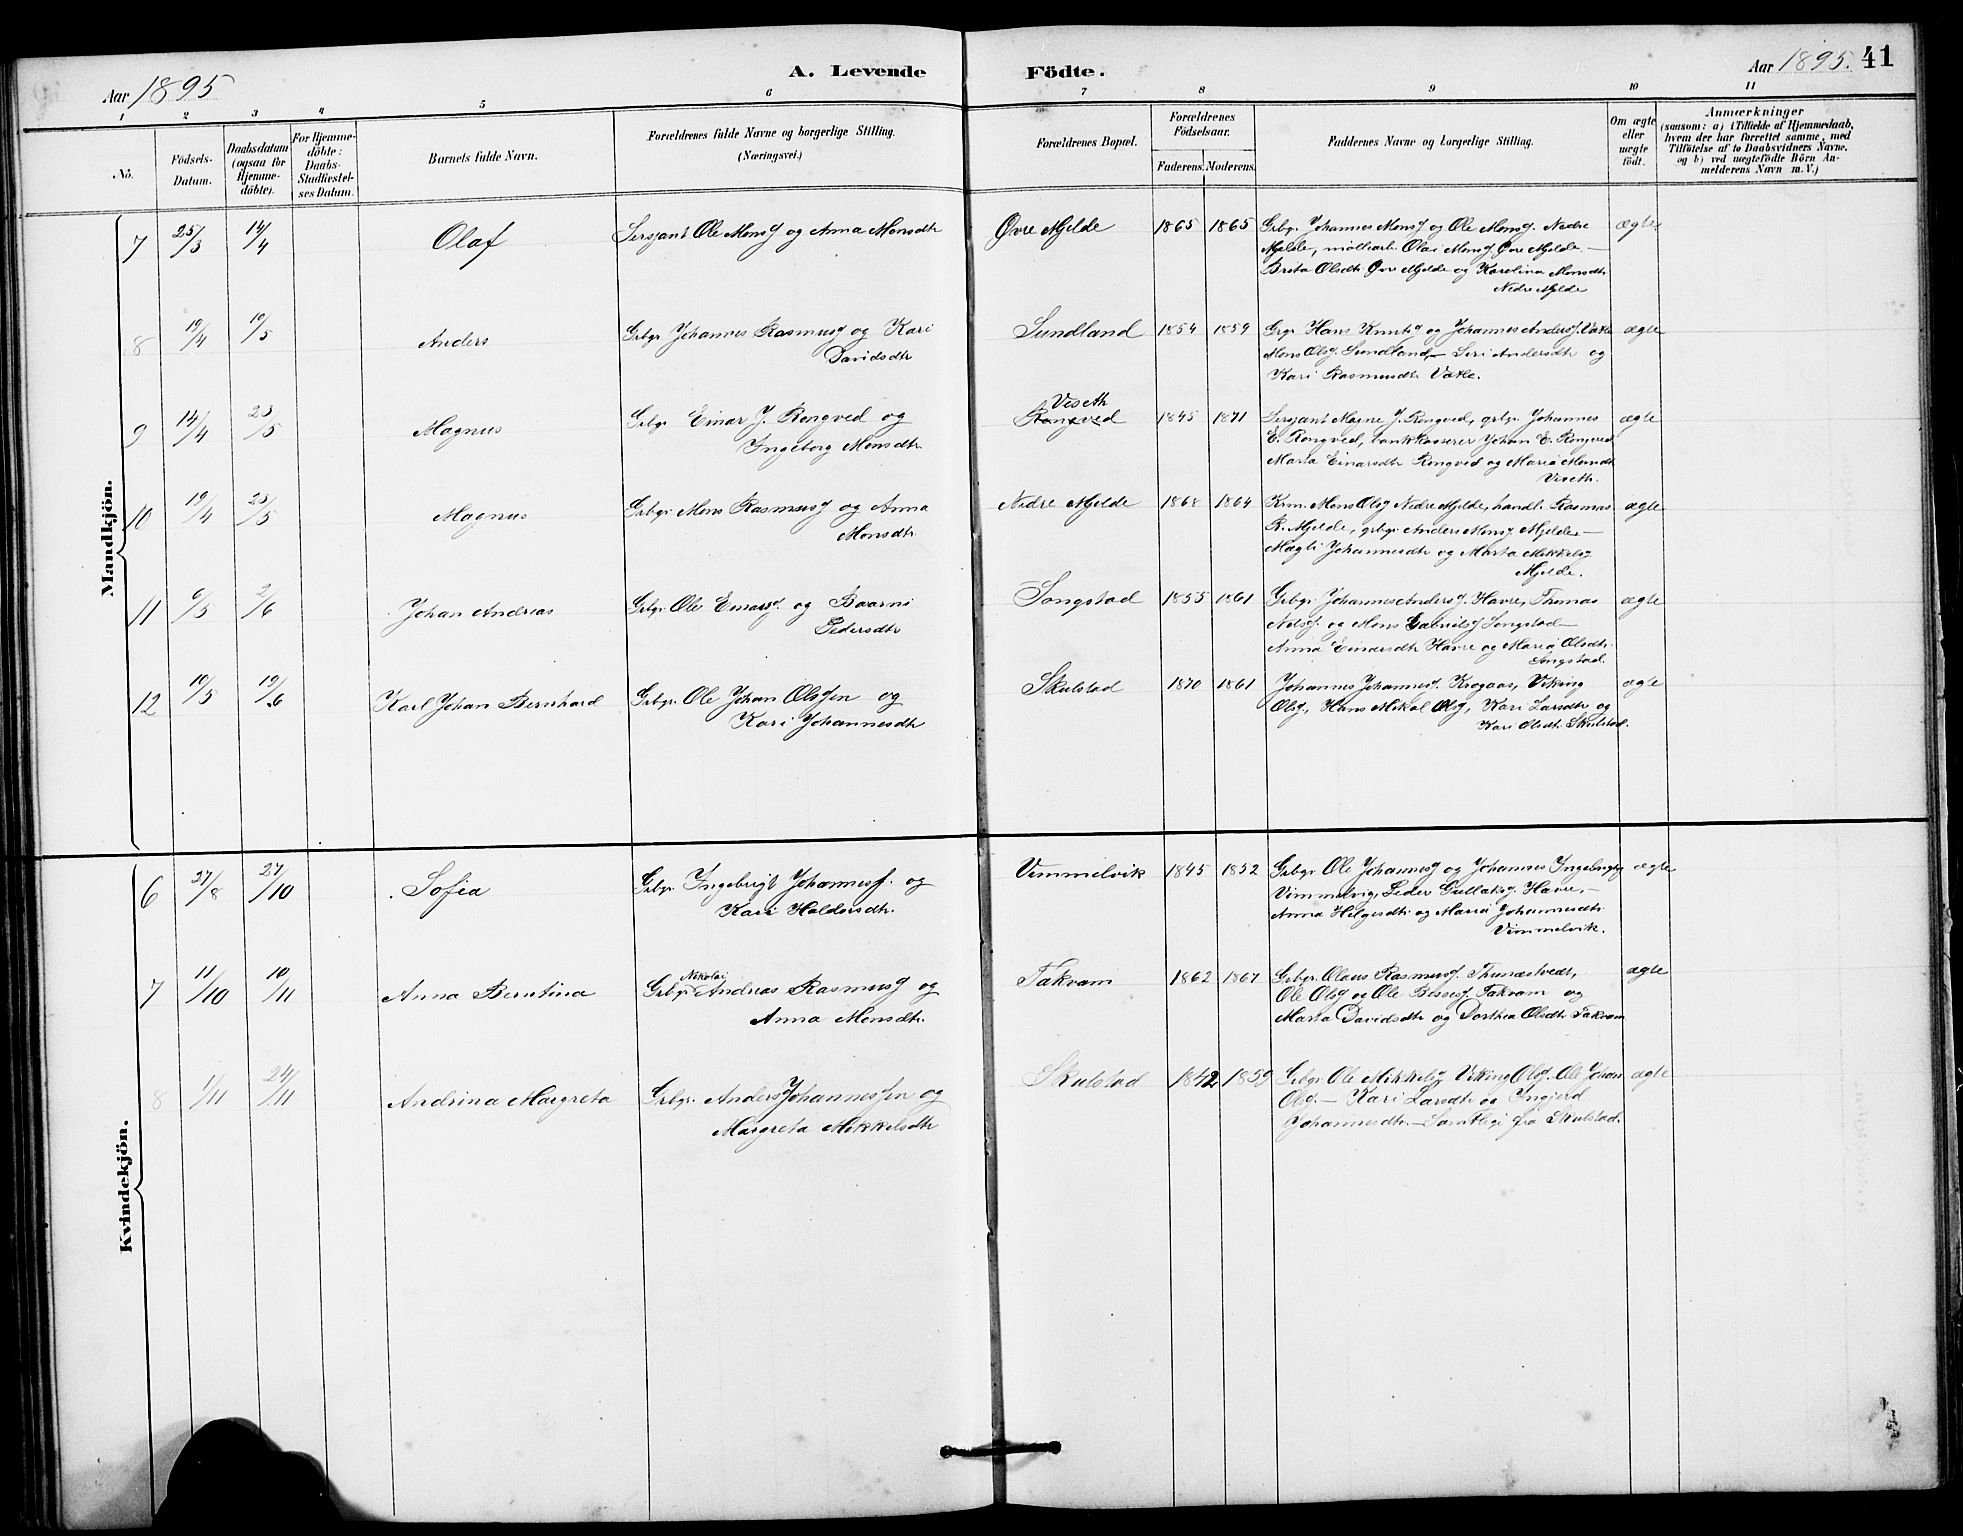 Aar 1895
A. Levende Födte.
Aar 1895. 41
1 2 3 4 5 6 7 8 9 10 11
No.
Födsels-Datum.
Daabsdatum (ogsaa for Hjemmedöbte).
For Hjemmedöbte: Daabs-Stadfæstelses Datum.
Barnets fulde Navn.
Forældrenes fulde Navne og borgerlige Stilling. (Næringsvei.)
Forældrenes Bopæl.
Forældrenes Födselsaar.
Faderens. Moderens.
Faddernes Navne og borgerlige Stilling.
Om ægte eller uægte født.
Anmærkninger
(saasom: a) i Tilfælde af Hjemmedaab, hvem der har forrettet samme, med Tilföielse af to Daabsvidners Navne, og b) ved uægtefödte Börn Anmelderens Navn m. V.)
Mandkjön.
7 25/3 14/4 Olaf Sersjant Ole Monsf og Anna Monsdtr Øvre Mjelde 1865 1865 Grbgr. Johannes Monsf og Ole Monsf. Nedre ægte
Mjelde, Olai Monsf Øvre Mjelde —
Brita Olsdtr Øvre Mjelde og Karolina Monsdtr
Nedre Mjelde
8 19/4 19/5 Anders Grbgr Johannes Rasmusf og Kari Sundland 1854 1859 Grgr. Hans Knutsf og Johannes Andersf. Vatle ægte
Davidsdtr Mons Olsf. Sundland, — Siri Andersdtr og
Kari Rasmusdtr Vatle.
9 14/4 23/5 Magnus Grbgr Einar J. Rongved og Viseth 1845 1871 Sersjant Magne J. Rongved, grbgr. Johannes ægte
Ingeborg Monsdtr. Rongved E. Rongved, bankkasserer Johan E. Rongved
Marta Einarsdtr Rongved og Maria Monsdtr
Viseth.
10 19/4 23/5 Magnus Grbgr. Mons Rasmusf og Anna Nedre Mjelde 1868 1864 Krm. Mons Olsf Nedre Mjelde, handl. Rasmus ægte
Monsdtr. R. Mjelde, grbgr. Anders Monsf Mjelde. —
Magli Johannesdtr og Marta Mikkelsf
Mjelde.
11 6/5 2/6 Johan Andreas Grbgr. Ole Einarsf. og Baarni Songstad 1855 1861 Grbgr. Johannes Andersf. Havre, Thomas ægte
Pedersdtr Nilsf. og Mons Songstad —
Anna Einarsdtr Havre og Maria Olsdtr.
Songstad.
12 19/5 19/6 Karl Johan Bernhard Grbgr. Ole Johan Olssen og Skulstad 1870 1861 Johannes Johannesf. Krogaas, Viking ægte
Kari Johannesdtr Olsf., Hans Mikal Olsf, Kari Larsdtr og
Kari Olsdtr. Skulstad.
Kvindekjön.
6 27/8 27/10 Sofia Grbgr. Ingebrigt Johannesf. og Vimmelvik 1845 1852 Grbgr. Ole Johannesf og Johannes Ingebrigtsf ægte
Kari Haldorsdtr. Vimmelvig, Peder Gullaksf. Havre, —
Anna Helgesdtr. og Maria Johannesdtr.
Vimmelvik.
7 11/10 10/11 Anna Berntina Grbgr. Nikolai Andreas Rasmusf og Takvam 1862 1867 Grbgr. Olaus Rasmusf. Thunestvedt, ægte
Anna Monsdtr. Ole Olsf og Ole Takvam og
Marta Davidsdtr og Dorthea Olsdtr Takvam
8 1/11 24/11 Andrina Margreta Grbgr. Anders Johannessen og Skulstad 1842 1859 Grbgr. Ole Mikkelsf Viking Olsf. Ole Johan ægte
Margreta Mikkelsdtr Olsf. — Kari Larsdtr og Ingjerd
Johannesdtr. — Samtlige fra Skulstad.